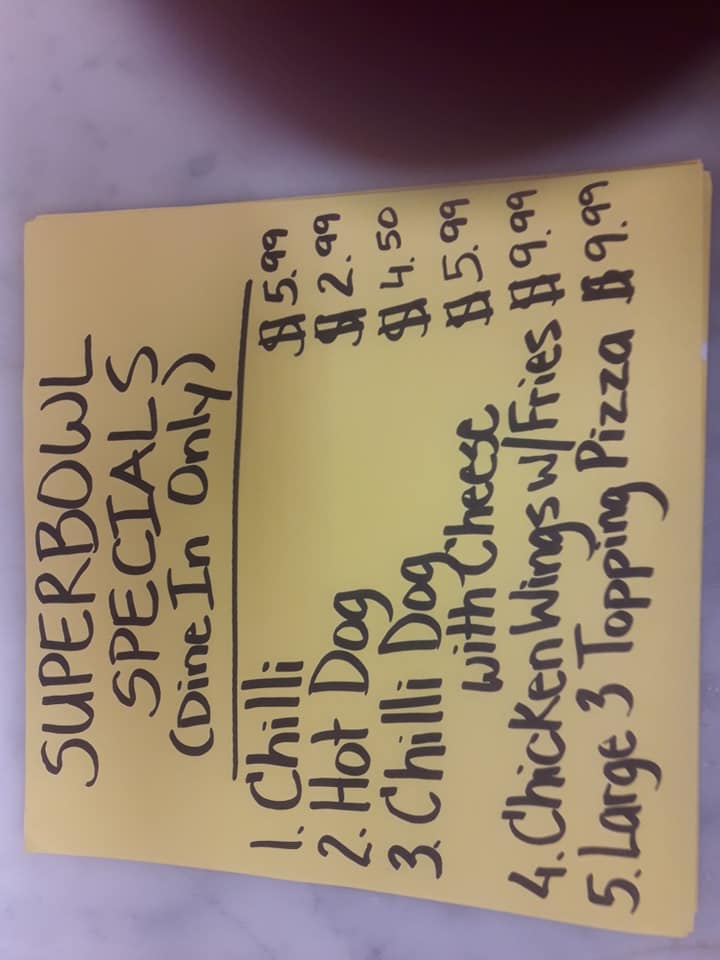 SUPERBOWL
SPECIALS
(Dine In Only)
1. Chilli $5.99
2. Hot Dog $2.99
3. Chilli Dog $4.50
with Cheese $5.99
4. Chicken Wings w/Fries $9.99
5. Large 3 Topping Pizza $9.99